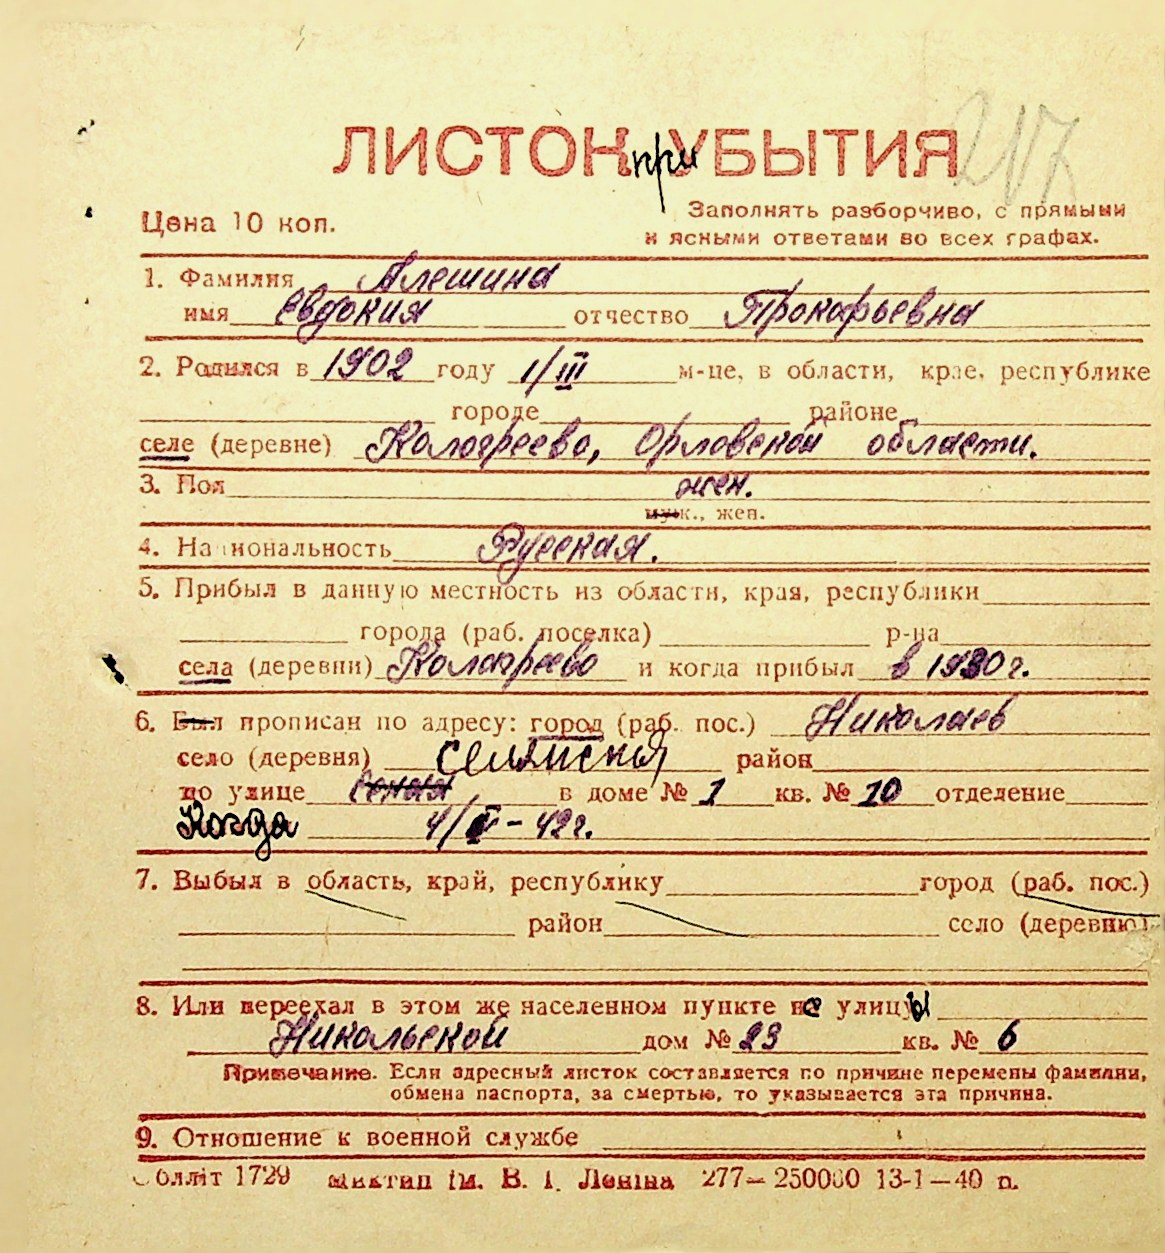 217
ЛИСТОК при УБЫТИЯ
Цена 10 коп.
Заполнять разборчиво, с прямыми
и ясными ответами во всех графах.
1. Фамилия Алешина
имя Евдокия отчество Прокофьевна
2. Родился в 1902 году 1/III м-це, в области, крае, республике
городе районе
селе (деревне) Кологреево, Орловской области.
3. Пол жен.
муж., жен.
4. Национальность Русская.
5. Прибыл в данную местность из области, края, республики
города (раб. поселка) р-на
села (деревни) Кологреево и когда прибыл в 1930 г.
6. Был прописан по адресу: город (раб. пос.) Николаев
село (деревня) район
по улице в доме № 1 кв. № 10 отделение
Когда 4/V-42 г.
7. Выбыл в область, край, республику город (раб. пос.)
район село (деревню)
8. Или переехал в этом же населенном пункте не улицы
Никольской дом № 23 кв. № 6
Примечание. Если адресный листок составляется по причине перемены фамилии,
обмена паспорта, за смертью, то указывается эта причина.
9. Отношение к военной службе
Облліт 1729 ім. В. І. Леніна 277—250000 13-1—40 п.